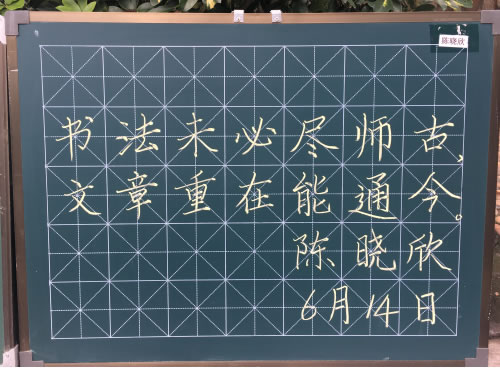 陈晓欣
书法未必尽师古，
文章重在能通今。
陈晓欣
6月14日